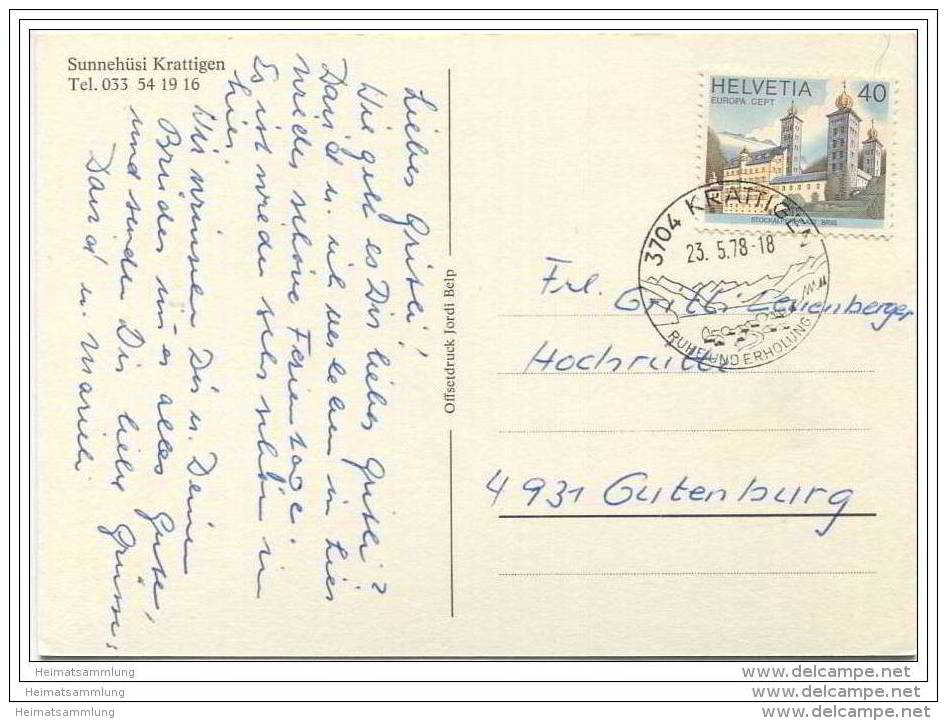 Sunnehüsi Krattigen
Tel. 033 54 19 16
Liebes Gritli!
Wie geht es Dir liebes Gritli?
David u. ich verleben in hier
wieder schöne Ferientage.
Es ist wieder sehr schön in
hier.
Wir wünschen Dir u. Deinen
Brüder nur alles Gute,
und senden Dir liebe Grüsse:
David u. Marieli
Offsetdruck Jordi Belp
HELVETIA 40
EUROPA CEPT
STOCKALPERPALAST BRIG
3704 KRATTIGEN
23. 5.78-18
RUHE UND ERHOLUNG
Frl. Leuenberger
4931 Gutenburg
Heimatsammlung
Heimatsammlung
Heimatsammlung
www.delcampe.net
www.delcampe.net
www.delcampe.net